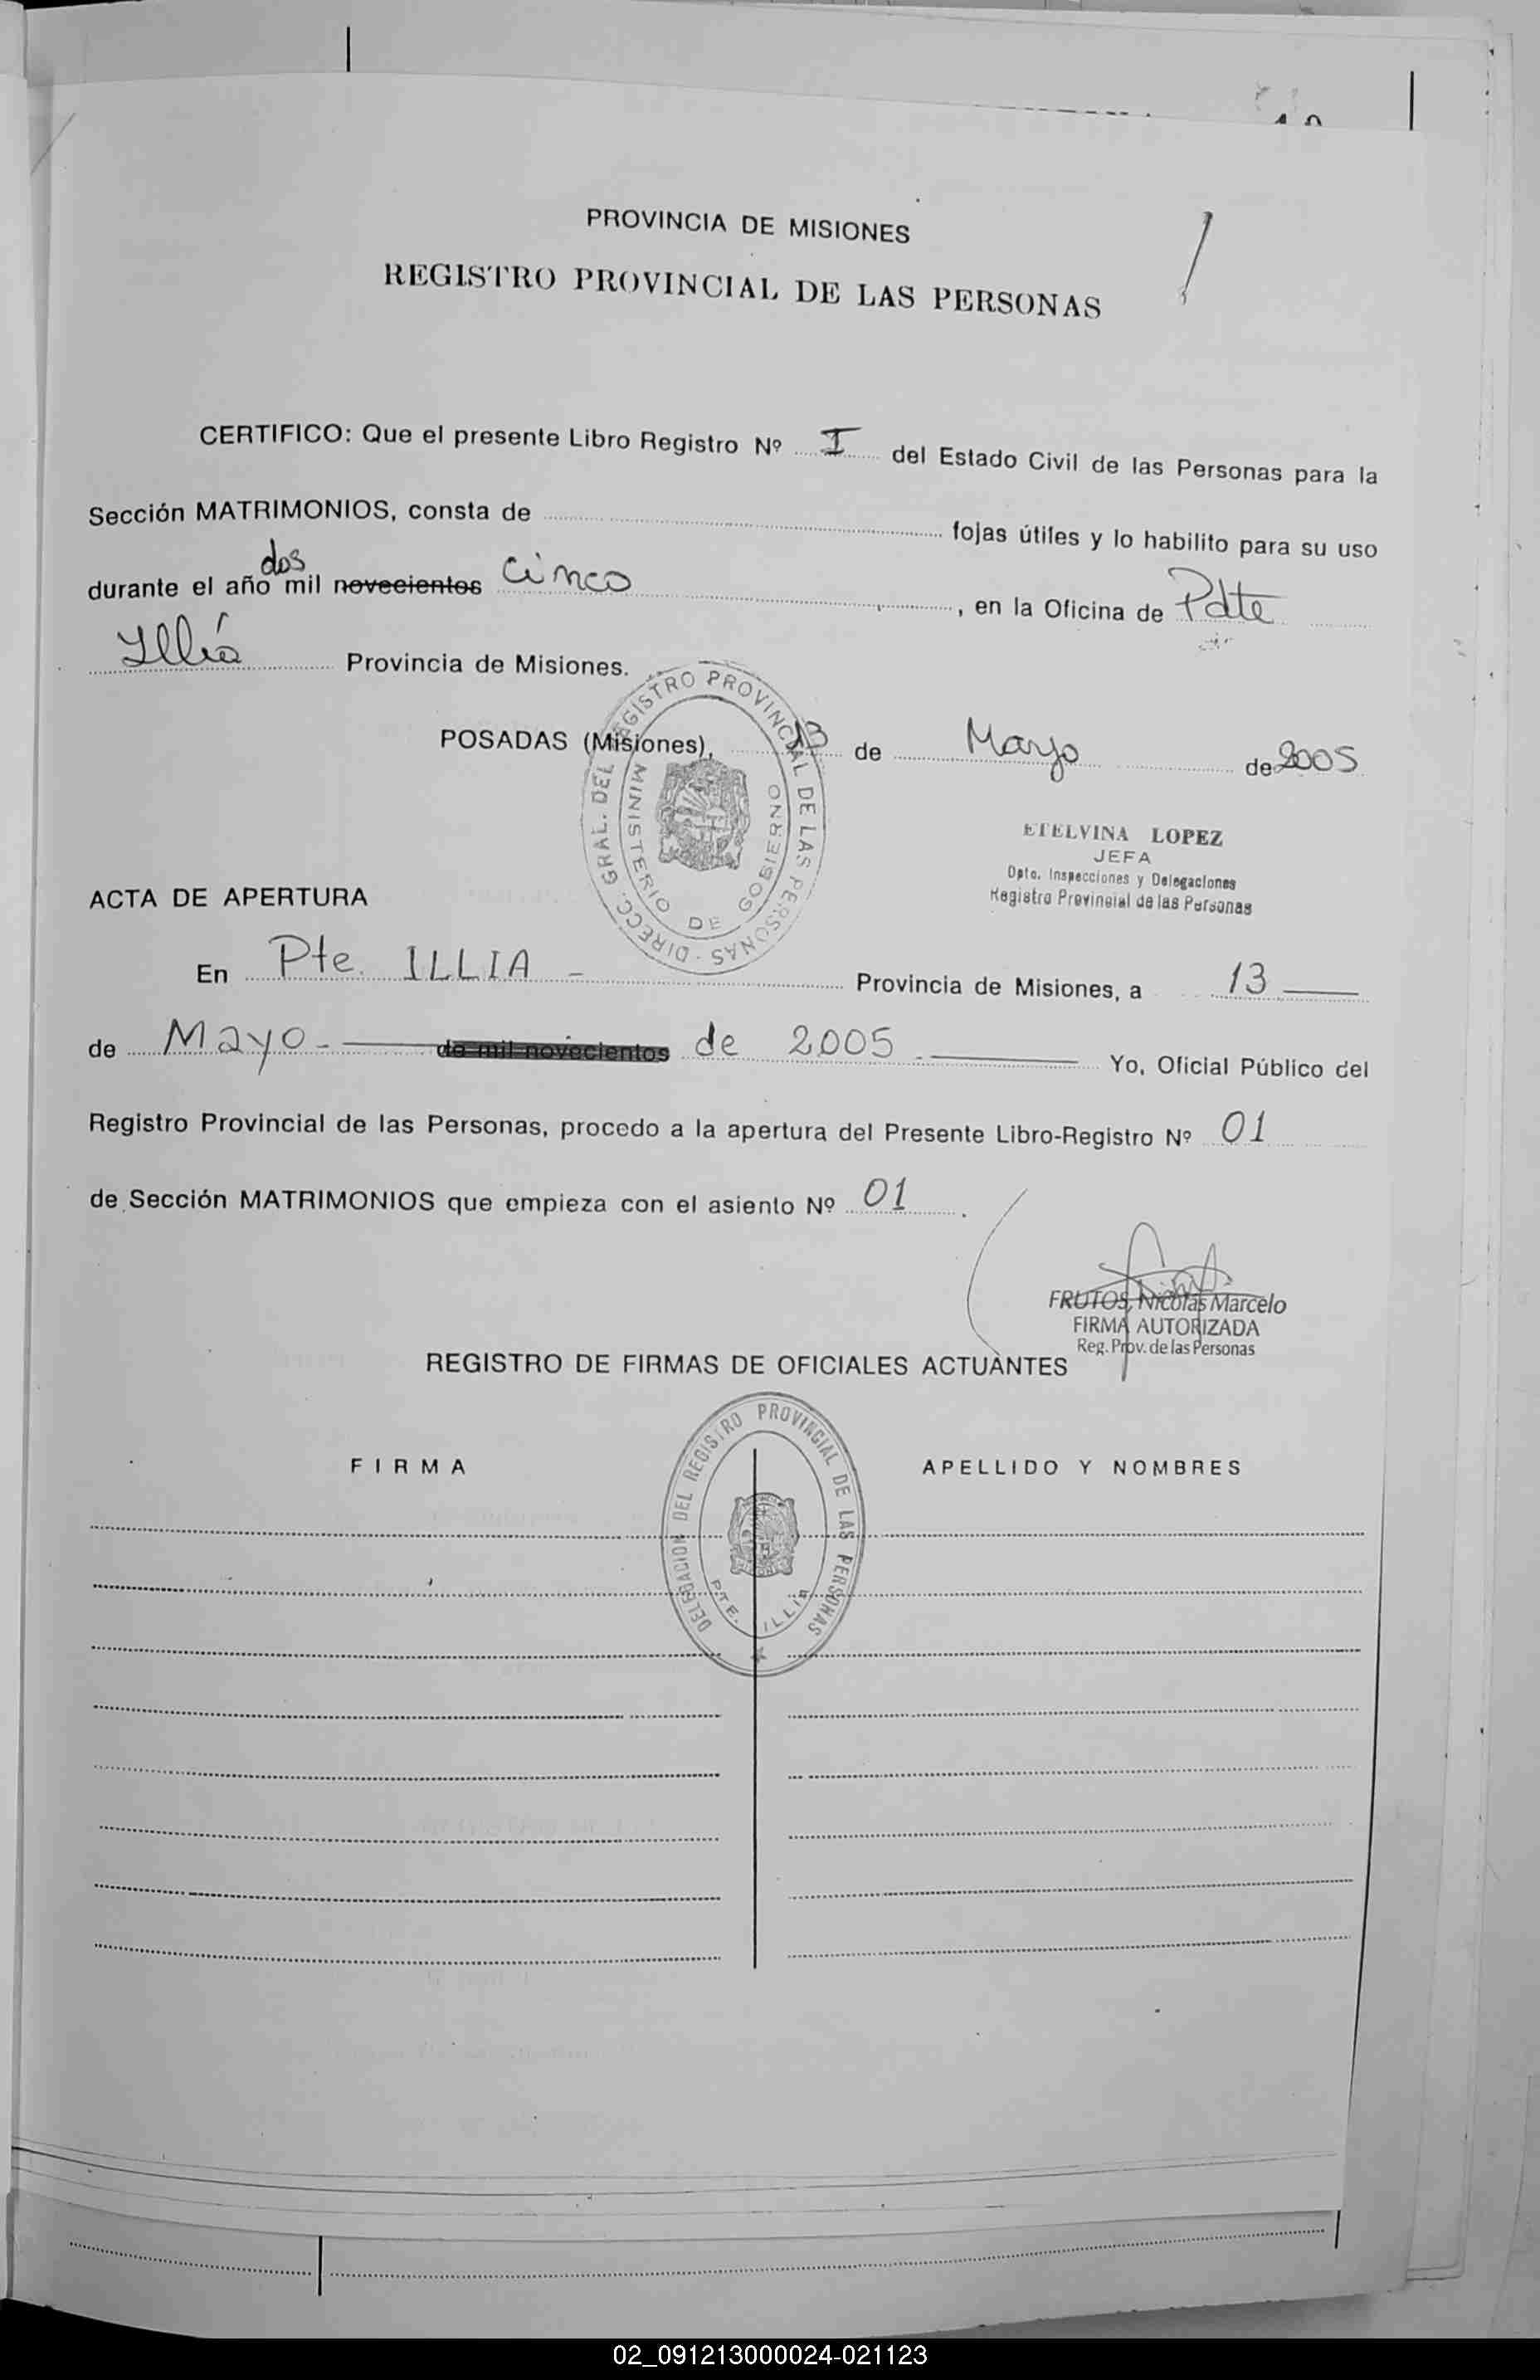 PROVINCIA DE MISIONES
REGISTRO PROVINCIAL DE LAS PERSONAS
CERTIFICO: Que el presente Libro Registro Nº I del Estado Civil de las Personas para la
Sección MATRIMONIOS, consta de fojas útiles y lo habilito para su uso
durante el año dos mil novecientos cinco, en la Oficina de Pdte
Illía Provincia de Misiones.
POSADAS (Misiones), 13 de Mayo de 2005
DIRECC. GRAL. DEL REGISTRO PROVINCIAL DE LAS PERSONAS
MINISTERIO DE GOBIERNO
ETELVINA LOPEZ
JEFA
Dpto. Inspecciones y Delegaciones
Registro Provincial de las Personas
ACTA DE APERTURA
En Pte. ILLIA - Provincia de Misiones, a 13
de Mayo - de mil novecientos de 2005 . Yo, Oficial Público del
Registro Provincial de las Personas, procedo a la apertura del Presente Libro-Registro Nº 01
de Sección MATRIMONIOS que empieza con el asiento Nº 01 .
FRUTOS, Nicolás Marcelo
FIRMA AUTORIZADA
Reg. Prov. de las Personas
REGISTRO DE FIRMAS DE OFICIALES ACTUANTES
FIRMA APELLIDO Y NOMBRES
DELEGACION DEL REGISTRO PROVINCIAL DE LAS PERSONAS
PTE. ILLIA
02_091213000024-021123